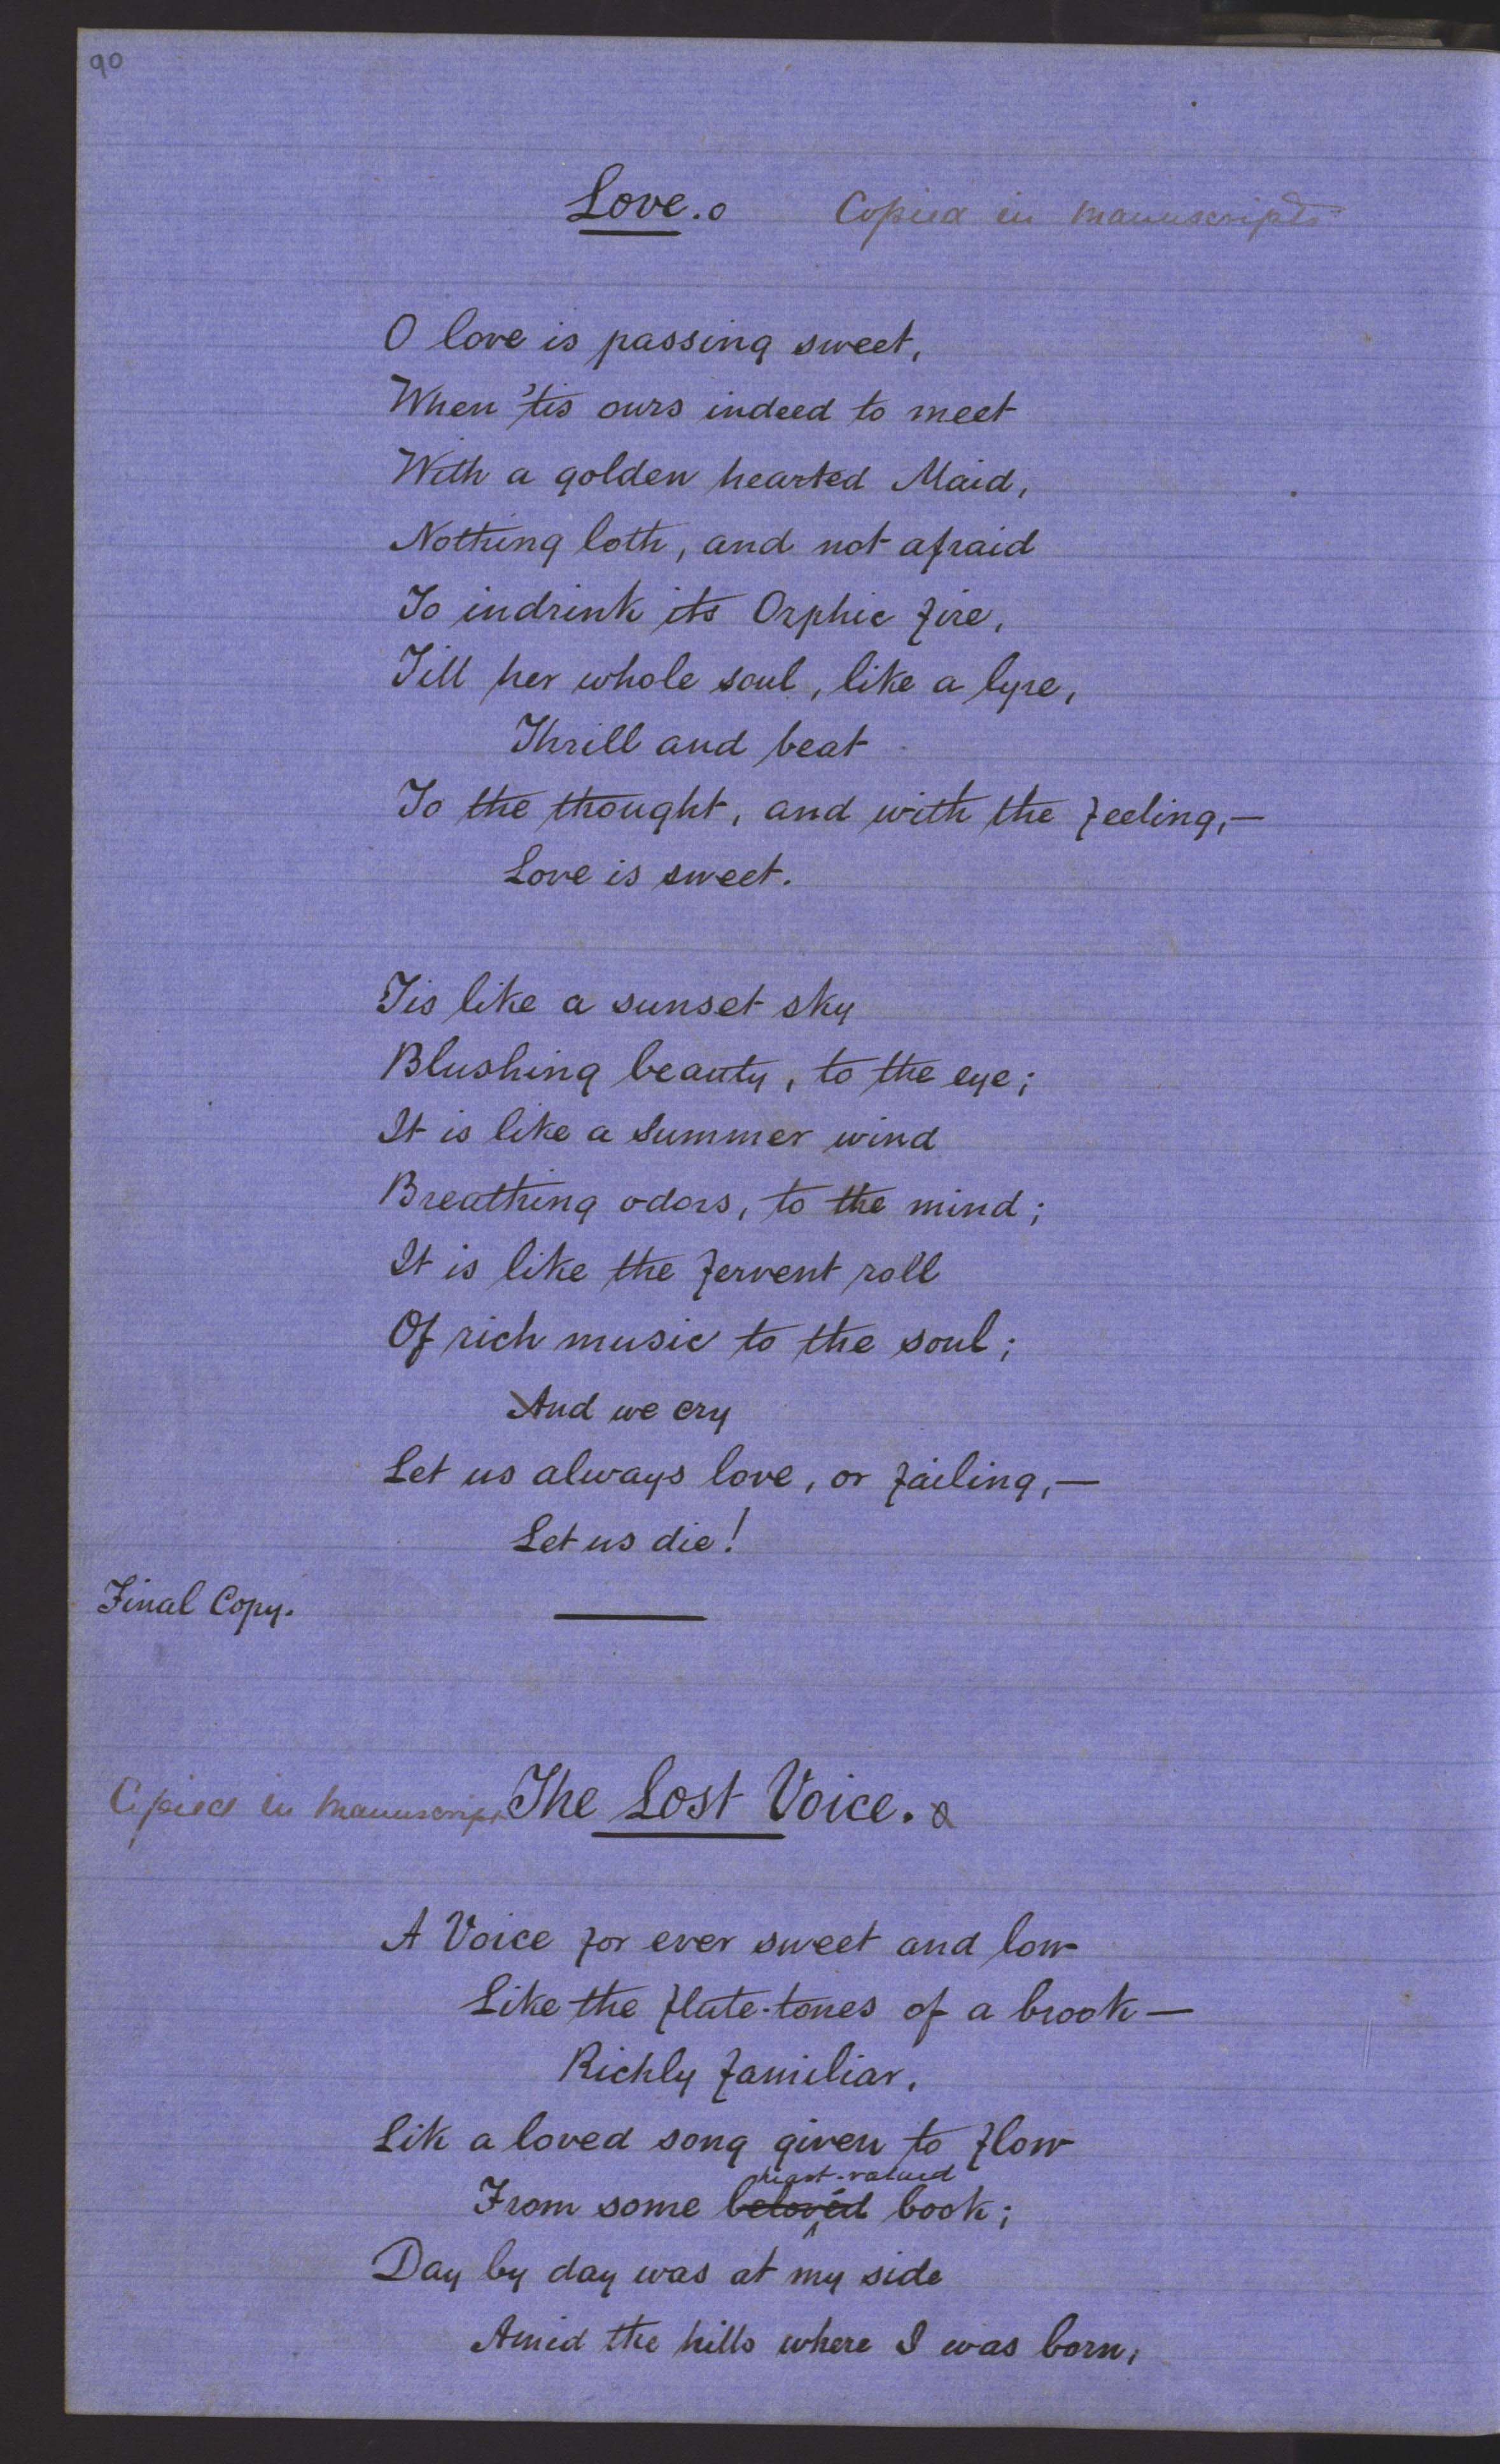 90
Love. o Copied in manuscript
O love is passing sweet,
When 'tis ours indeed to meet
With a golden hearted Maid,
Nothing loth, and not afraid
To indrink its Orphic fire,
Till her whole soul, like a lyre,
Thrill and beat
To the thought, and with the feeling,—
Love is sweet.
Tis like a sunset sky
Blushing beauty, to the eye;
It is like a summer wind
Breathing odors, to the mind;
It is like the fervent roll
Of rich music to the soul;
And we cry
Let us always love, or failing,—
Let us die!
Final Copy.
Copied in manuscript The Lost Voice.
A Voice for ever sweet and low
Like the flute-tones of a brook—
Richly familiar,
Lik a loved song given to flow
heart-valued
From some beloved book;
Day by day was at my side
Amid the hills where I was born,